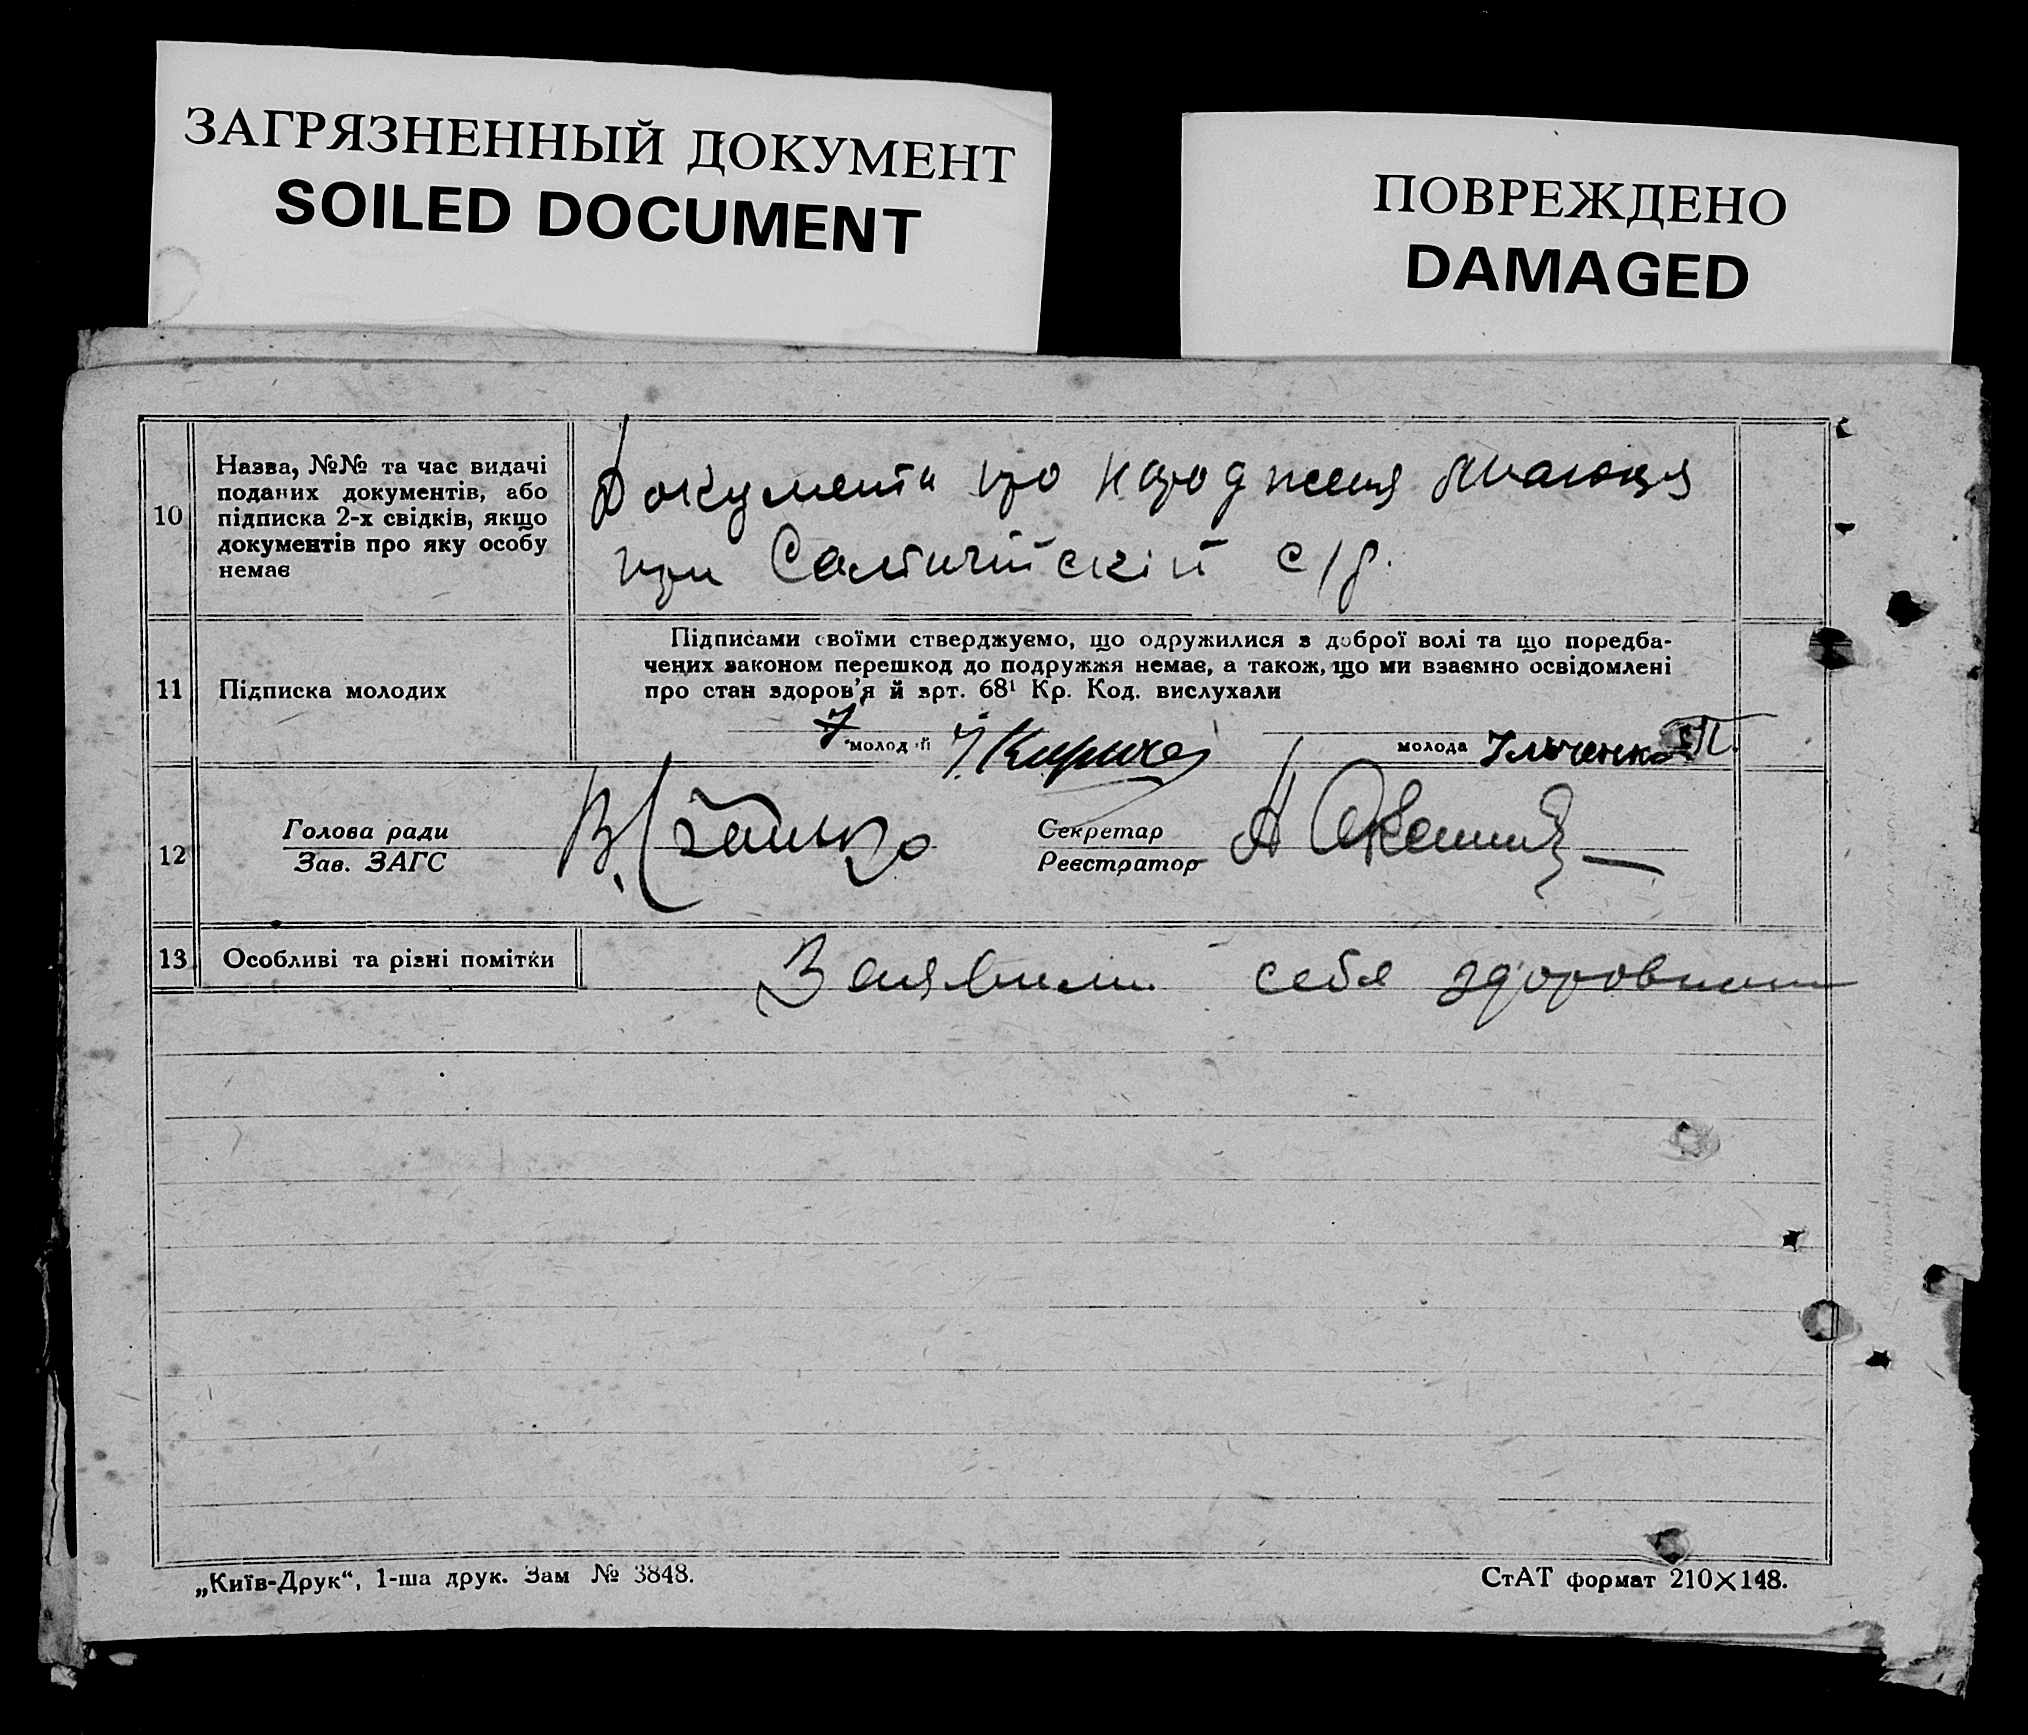 ЗАГРЯЗНЕННЫЙ ДОКУМЕНТ
SOILED DOCUMENT
ПОВРЕЖДЕНО
DAMAGED
10
Назва, №№ та час видачі
поданих документів, або
підписка 2-х свідків, якщо
документів про яку особу
немає
Документи про народження
при с/р.
11
Підписка молодих
Підписами своїми стверджуємо, що одружилися з доброї волі та що поредба-
чених законом перешкод до подружжя немає, а також, що ми взаємно освідомлені
про стан здоров'я й арт. 68¹ Кр. Код. вислухали
молодий
молода Ільченко П.
12
Голова ради
Зав. ЗАГС
Секретар
Реєстратор
13
Особливі та різні помітки
Заявили себя здоровими
„Київ-Друк“, 1-ша друк. Зам № 3848.
СтАТ формат 210×148.